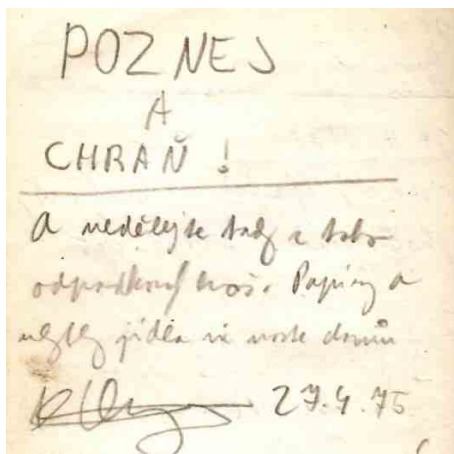 POZNEJ
A
CHRAŇ !
A nedělejte tady z toho
odpadkový koš. Papíry a
zbytky jídla si noste domů
27.4.75